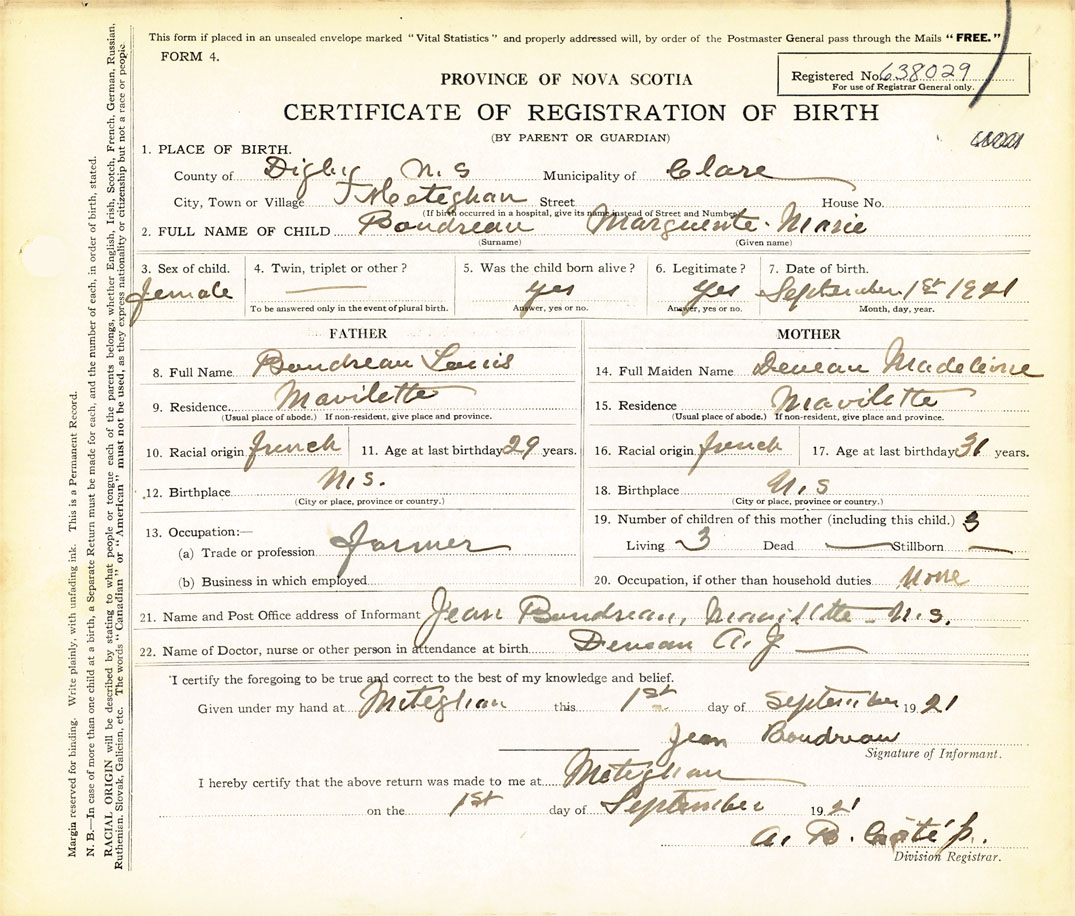 This form if placed in an unsealed envelope marked "Vital Statistics" and properly addressed will, by order of the Postmaster General pass through the Mails "FREE."
FORM 4.
PROVINCE OF NOVA SCOTIA
Registered No. 638029
For use of Registrar General only.
CERTIFICATE OF REGISTRATION OF BIRTH
(BY PARENT OR GUARDIAN)
1. PLACE OF BIRTH.
County of Digby N.S Municipality of Clare
City, Town or Village Meteghan Street House No.
(If birth occurred in a hospital, give its name instead of Street and Number)
2. FULL NAME OF CHILD Boudreau Marguerite Marie
(Surname) (Given name)
3. Sex of child. 4. Twin, triplet or other? 5. Was the child born alive? 6. Legitimate? 7. Date of birth.
female yes yes September 1st 1921
To be answered only in the event of plural birth. Answer, yes or no. Answer, yes or no. Month, day, year.
FATHER
8. Full Name Boudreau Louis
9. Residence Mavilette
(Usual place of abode.) If non-resident, give place and province.
10. Racial origin french 11. Age at last birthday 29 years.
12. Birthplace N.S.
(City or place, province or country.)
13. Occupation:—
(a) Trade or profession farmer
(b) Business in which employed
MOTHER
14. Full Maiden Name Deveau Madeleine
15. Residence Mavilette
(Usual place of abode.) If non-resident, give place and province.
16. Racial origin french 17. Age at last birthday 31 years.
18. Birthplace N.S
(City or place, province or country.)
19. Number of children of this mother (including this child.) 3
Living 3 Dead — Stillborn —
20. Occupation, if other than household duties None
21. Name and Post Office address of Informant Jean Boudreau, Mavillette - N.S.
22. Name of Doctor, nurse or other person in attendance at birth Deveau A. J
I certify the foregoing to be true and correct to the best of my knowledge and belief.
Given under my hand at Meteghan this 1st day of September 1921
Jean Boudreau
Signature of Informant.
I hereby certify that the above return was made to me at Meteghan
on the 1st day of September 1921
A. B.
Division Registrar.
Margin reserved for binding. Write plainly, with unfading ink. This is a Permanent Record.
N. B.—In case of more than one child at a birth, a Separate Return must be made for each, and the number of each, in order of birth, stated.
RACIAL ORIGIN will be described by stating to what people or tongue each of the parents belongs, whether English, Irish, Scotch, French, German, Russian,
Ruthenian, Slovak, Galician, etc. The words "Canadian" or "American" must not be used, as they express nationality or citizenship but not a race or people